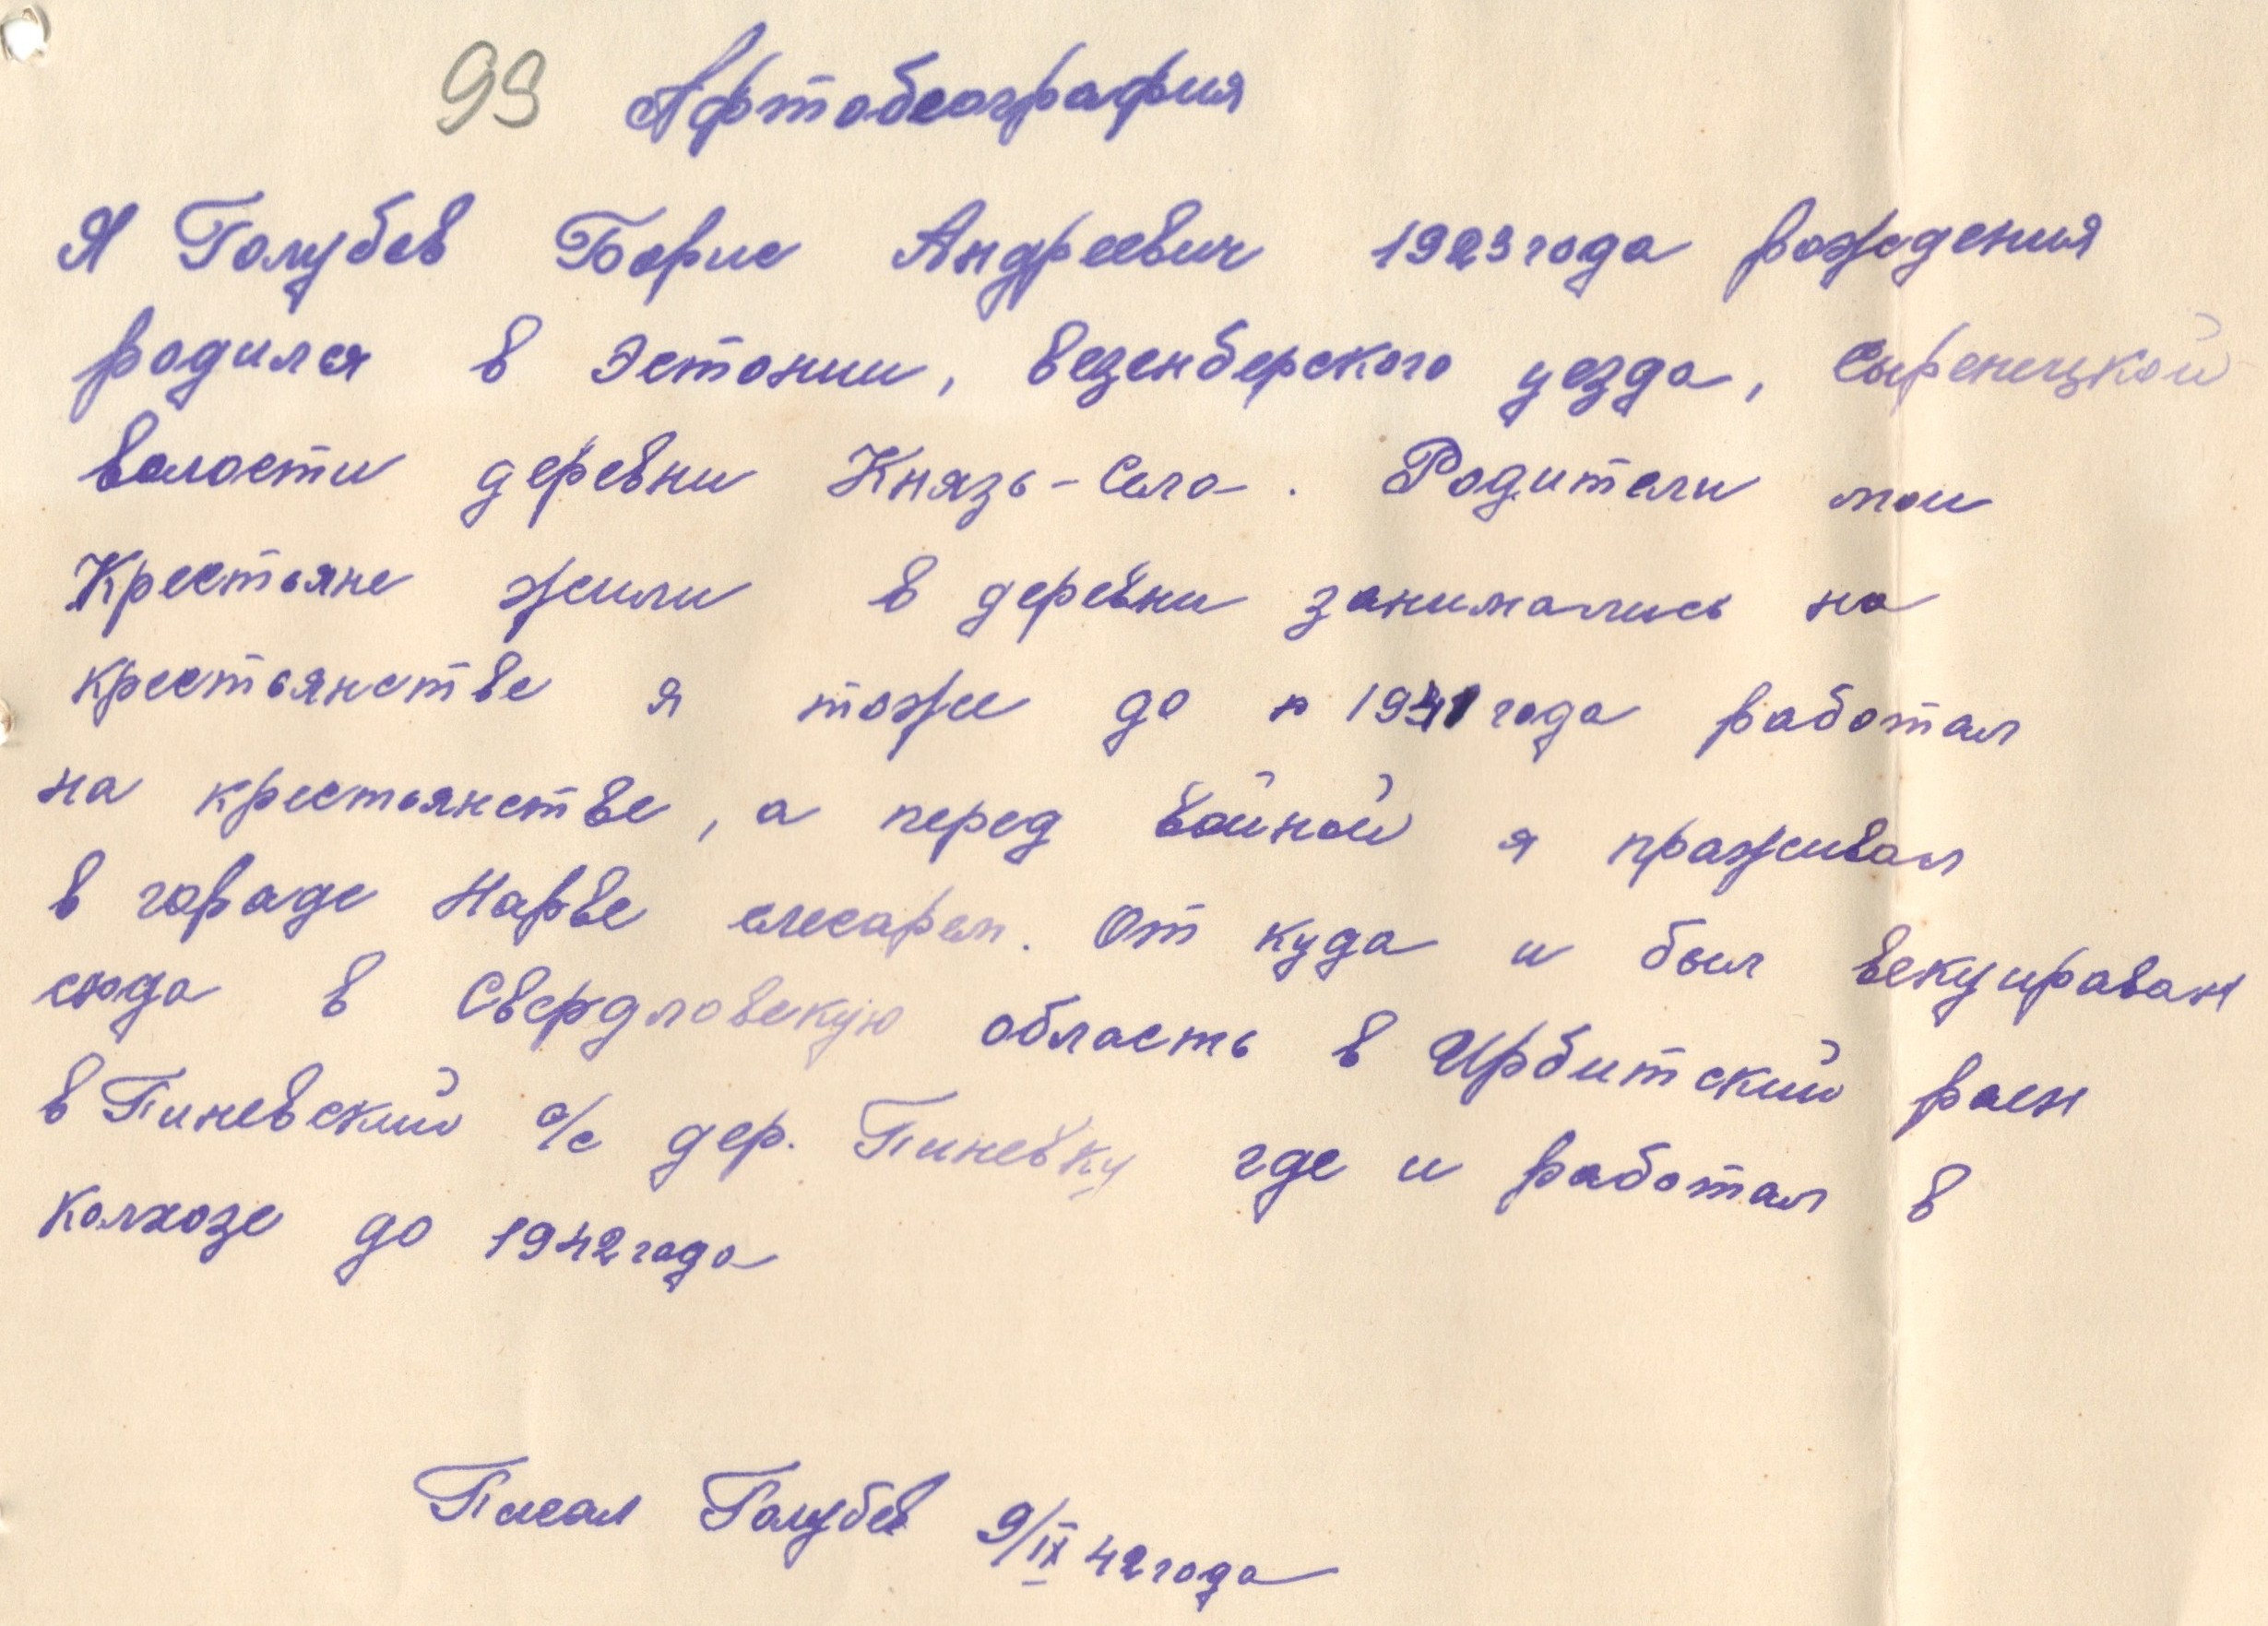 99 Афтобеография
Я Голубев Борис Андреевич 1923 года рождения
родился в Эстонии, везенберского уезда, Сыренецкой
волости деревни Князь-Село. Родители мои
Крестьяне жили в деревни занимались на
крестьянстве я тоже до 1941 года работал
на крестьянстве, а перед войной я праживал
в гораде Нарве слесарем. От куда и был векуираван
сюда в Свердловскую область в Ирбитский раен
в Пиневский с/с дер. Пиневку где и работал в
Колхозе до 1942 года
Писал Голубев 9/IX 42 года